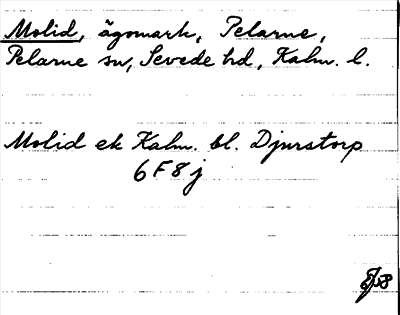 Molid, ägomark, Pelarne,
Pelarne sn, Sevede hd, Kalm. l.
Molid ek Kalm. bl. Djurstorp
6 F 8 j